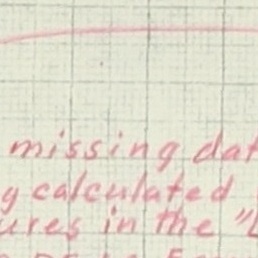 missing dat
y calculated
ures in the "L